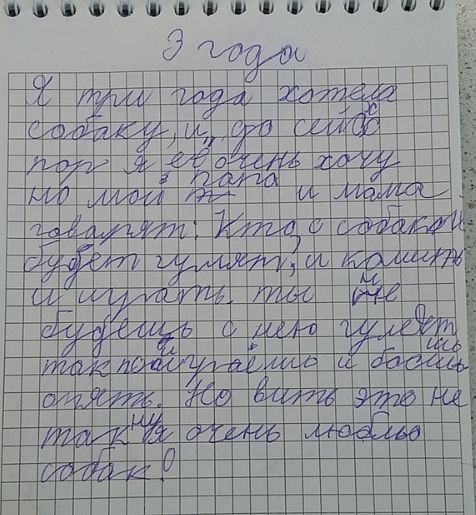 3 года
Я три года хотела
собаку, и до сей х
пор я её очень хочу
но мой папа и мама
говарят: Кто с собакой
будет гулять, и камить
и играть. ты не
будешь с нею гулять
так поиграешь и босишь
опять. Но вить это не
так ну я очень люблю
собак!